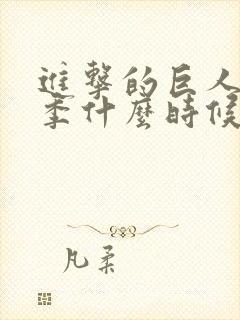 進擊的巨人
季什麼時候
凡柔